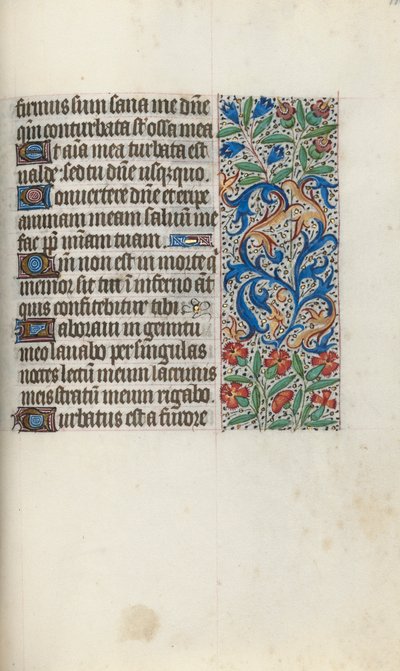 firmus sum sana me dñe
qm̄ conturbata st̄ ossa mea
Et aīa mea turbata est
ualde: sed tu dñe usq; quo.
Conuertere dñe et eripe
animam meam saluum me
fac ꝓp̄ mīam tuam.
Qm̄ non est in morte q̄
memor sit tui: in inferno aūt
quis confitebitur tibi
Laboraui in gemitu
meo lauabo per singulas
noctes lectū meum lacrimis
meis stratū meum rigabo.
Turbatus est a furore